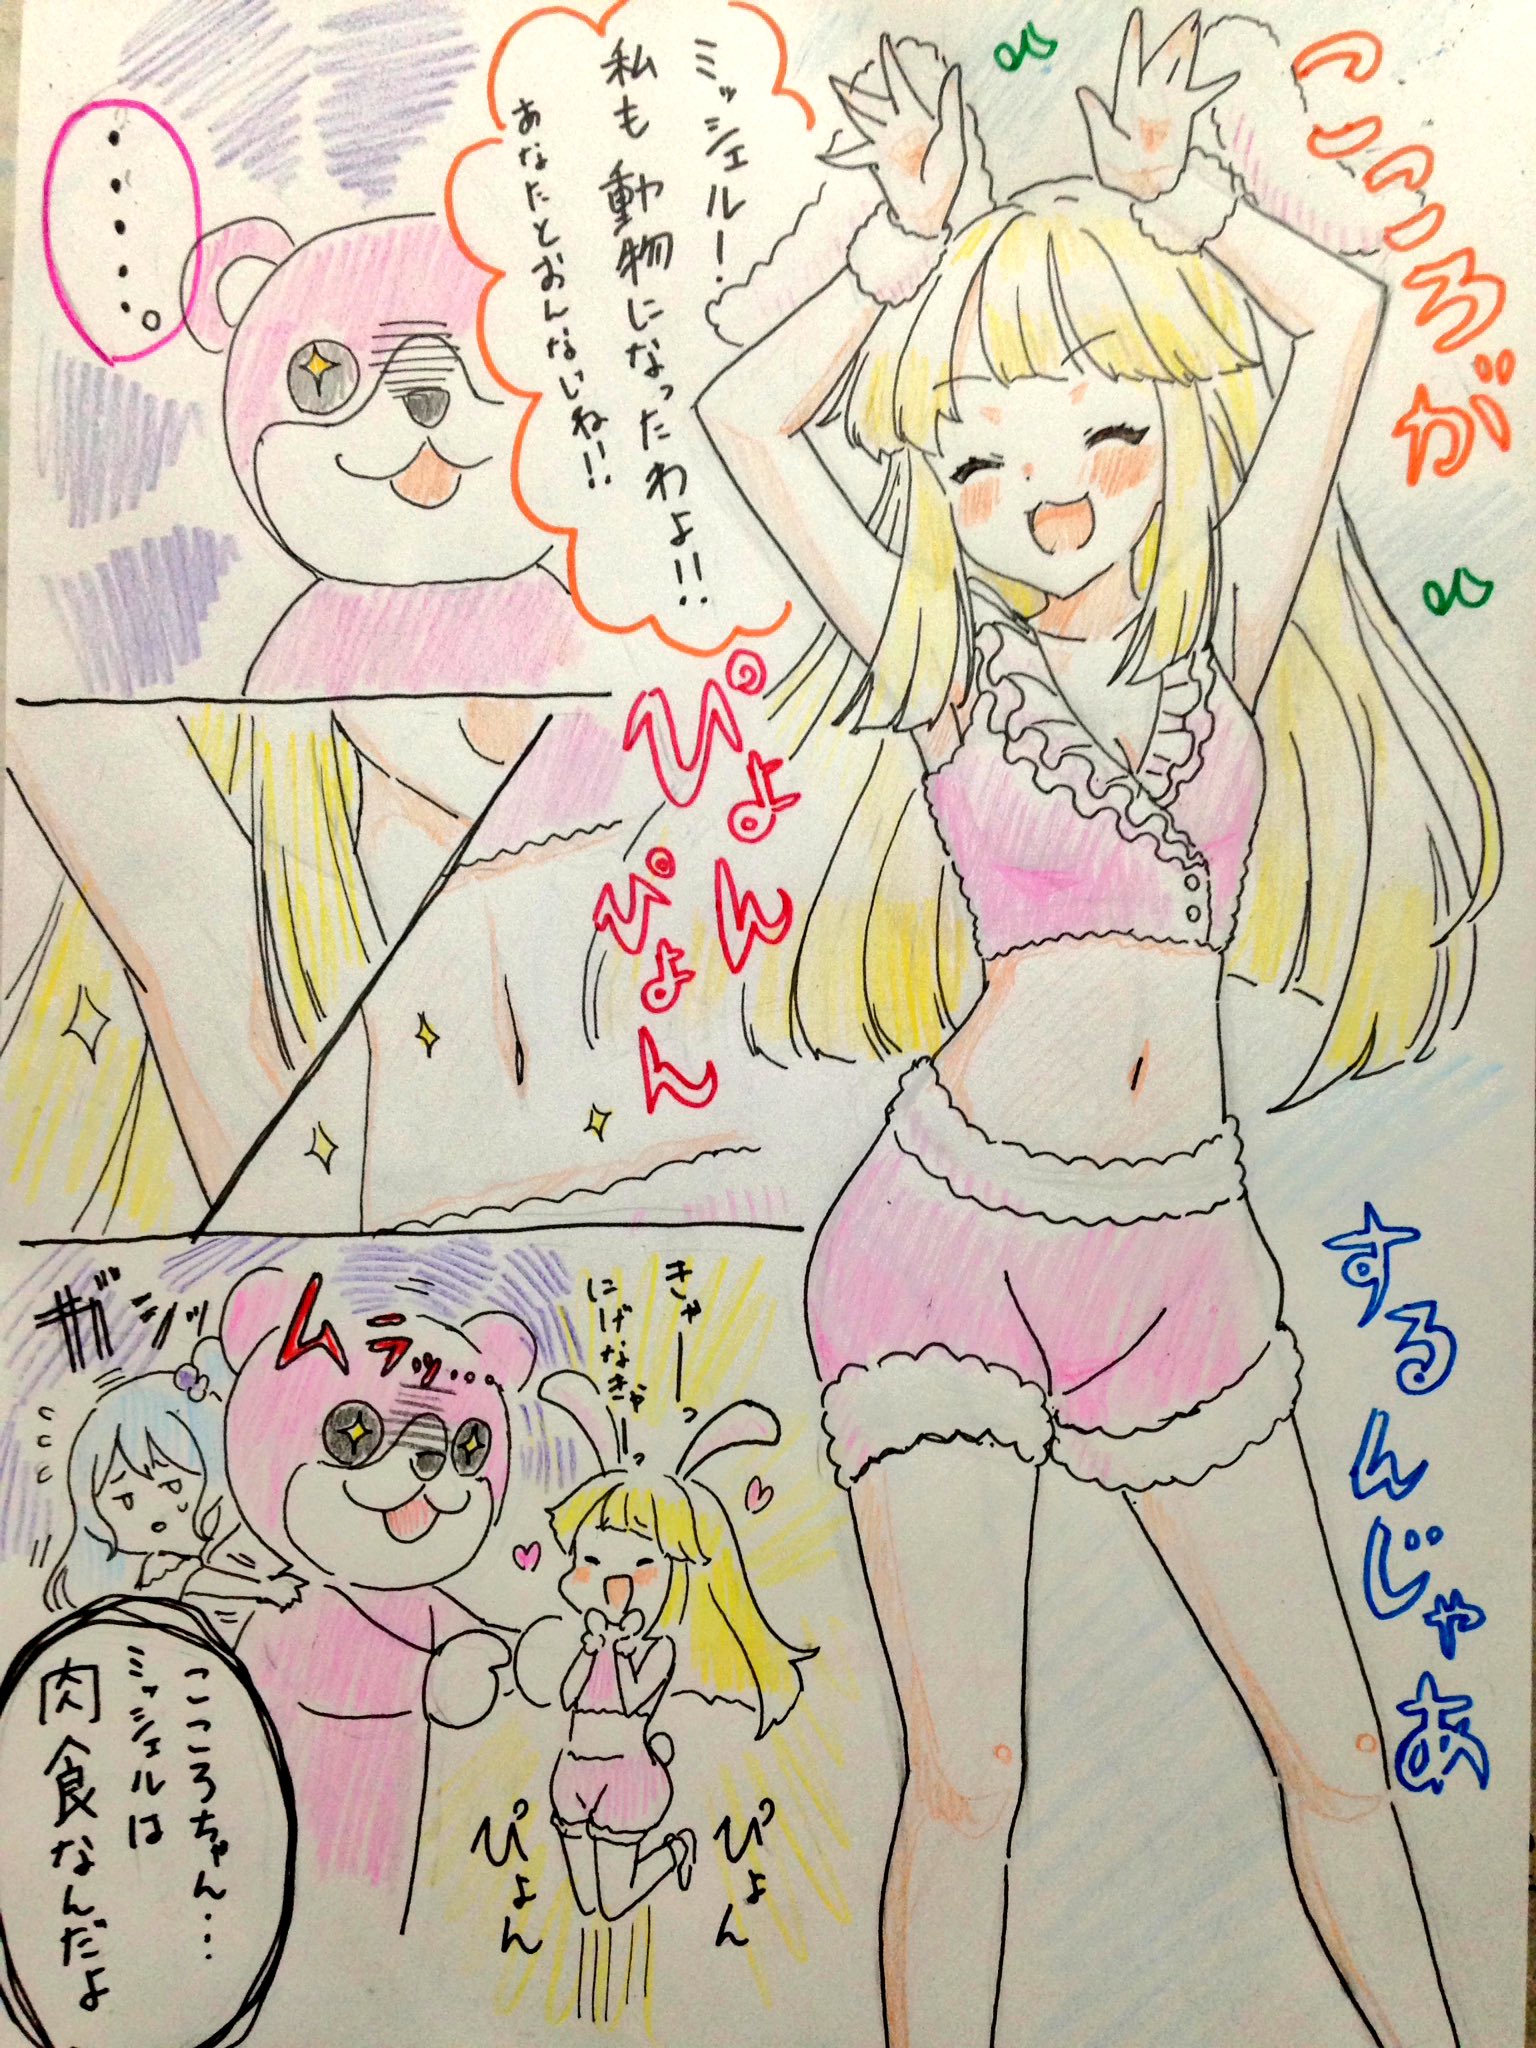 こころが
ぴょんぴょん
するんじゃあ
ミッシェル！
私も動物になったわよ！！
あなたとおんなじね！！
・・・・・。
きゃーっ
にげなきゃーっ
ムラッ…
ギシッ
ぴょん
ぴょん
こころちゃん…
ミッシェルは
肉食なんだよ